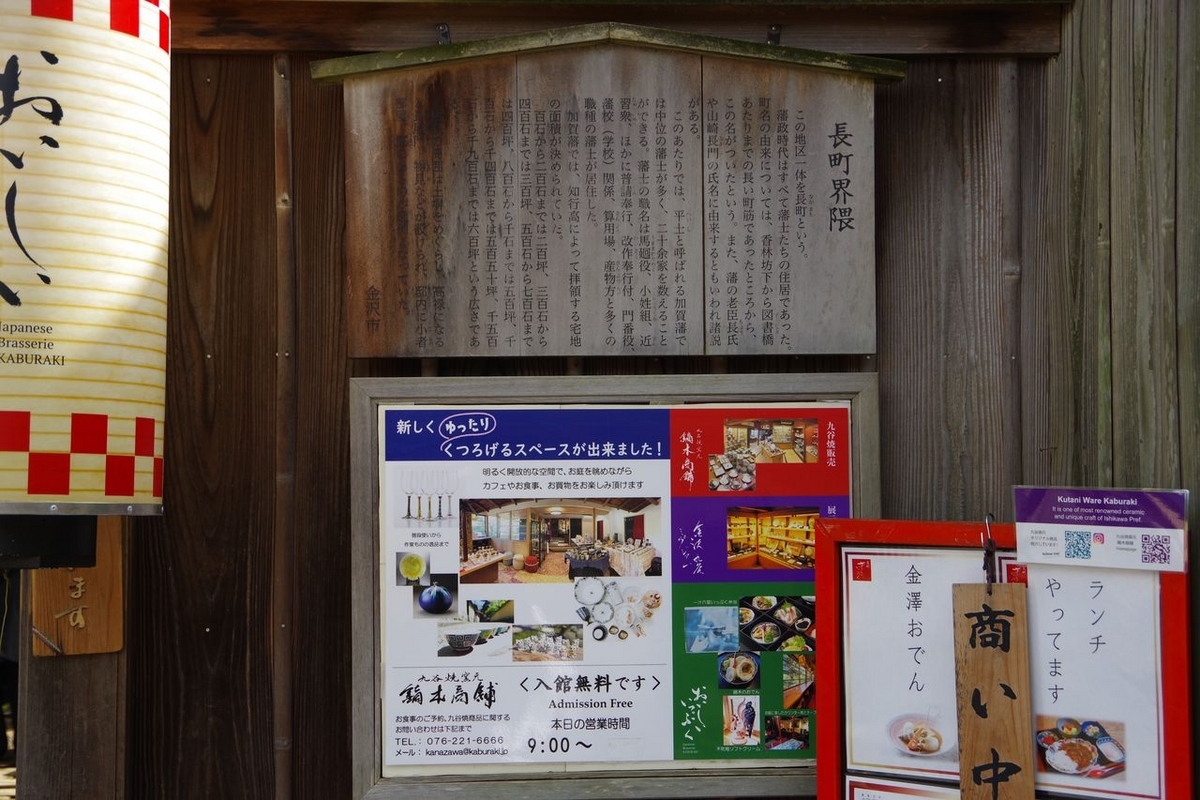 長町界隈
この地区一体を長町という。
藩政時代はすべて藩士たちの住居であった。
町名の由来については、香林坊下から図書橋
あたりまでの長い町筋であったところから、
この名がついたという。また、藩の老臣長氏
や山崎長門の氏名に由来するともいわれ諸説
がある。
このあたりでは、平士と呼ばれる加賀藩で
は中位の藩士が多く、二十余家を数えること
ができる。藩士の職名は馬廻役、小姓組、近
習衆、ほかに普請奉行、改作奉行付、門番役、
藩校（学校）関係、算用場、産物方と多くの
職種の藩士が居住した。
加賀藩では、知行高によって拝領する宅地
の面積が決められていた。
百石から二百石までは二百坪、三百石から
四百石までは三百坪、五百石から七百石まで
は四百坪、八百石から千石までは五百坪、千
百石から千四百石までは五百五十坪、千五百
石から千九百石までは六百坪という広さであ
土塀をめぐらし、高禄になる
物見などが設けられ、邸内に小者
金沢市
おいしい
Japanese
Brasserie
KABURAKI
ます
新しく ゆったり
くつろげるスペースが出来ました！
明るく開放的な空間で、お庭を眺めながら
カフェやお食事、お買物をお楽しみ頂けます
普段使いから
作家ものの逸品まで
九谷焼窯元
鏑木商舗
お食事のご予約、九谷焼商品に関する
お問い合わせは下記まで
TEL.: 076-221-6666
メール: kanazawa@kaburaki.jp
〈入館無料です〉
Admission Free
本日の営業時間
9:00～
九谷焼販売
九谷焼窯元
鏑木商舗
展
金沢
おいしい
いっぷく
鏑木のおでん
Kutani Ware Kaburaki
It is one of most renowned ceramic
and unique craft of Ishikawa Pref.
金澤おでん
商い中
ランチ
やってます